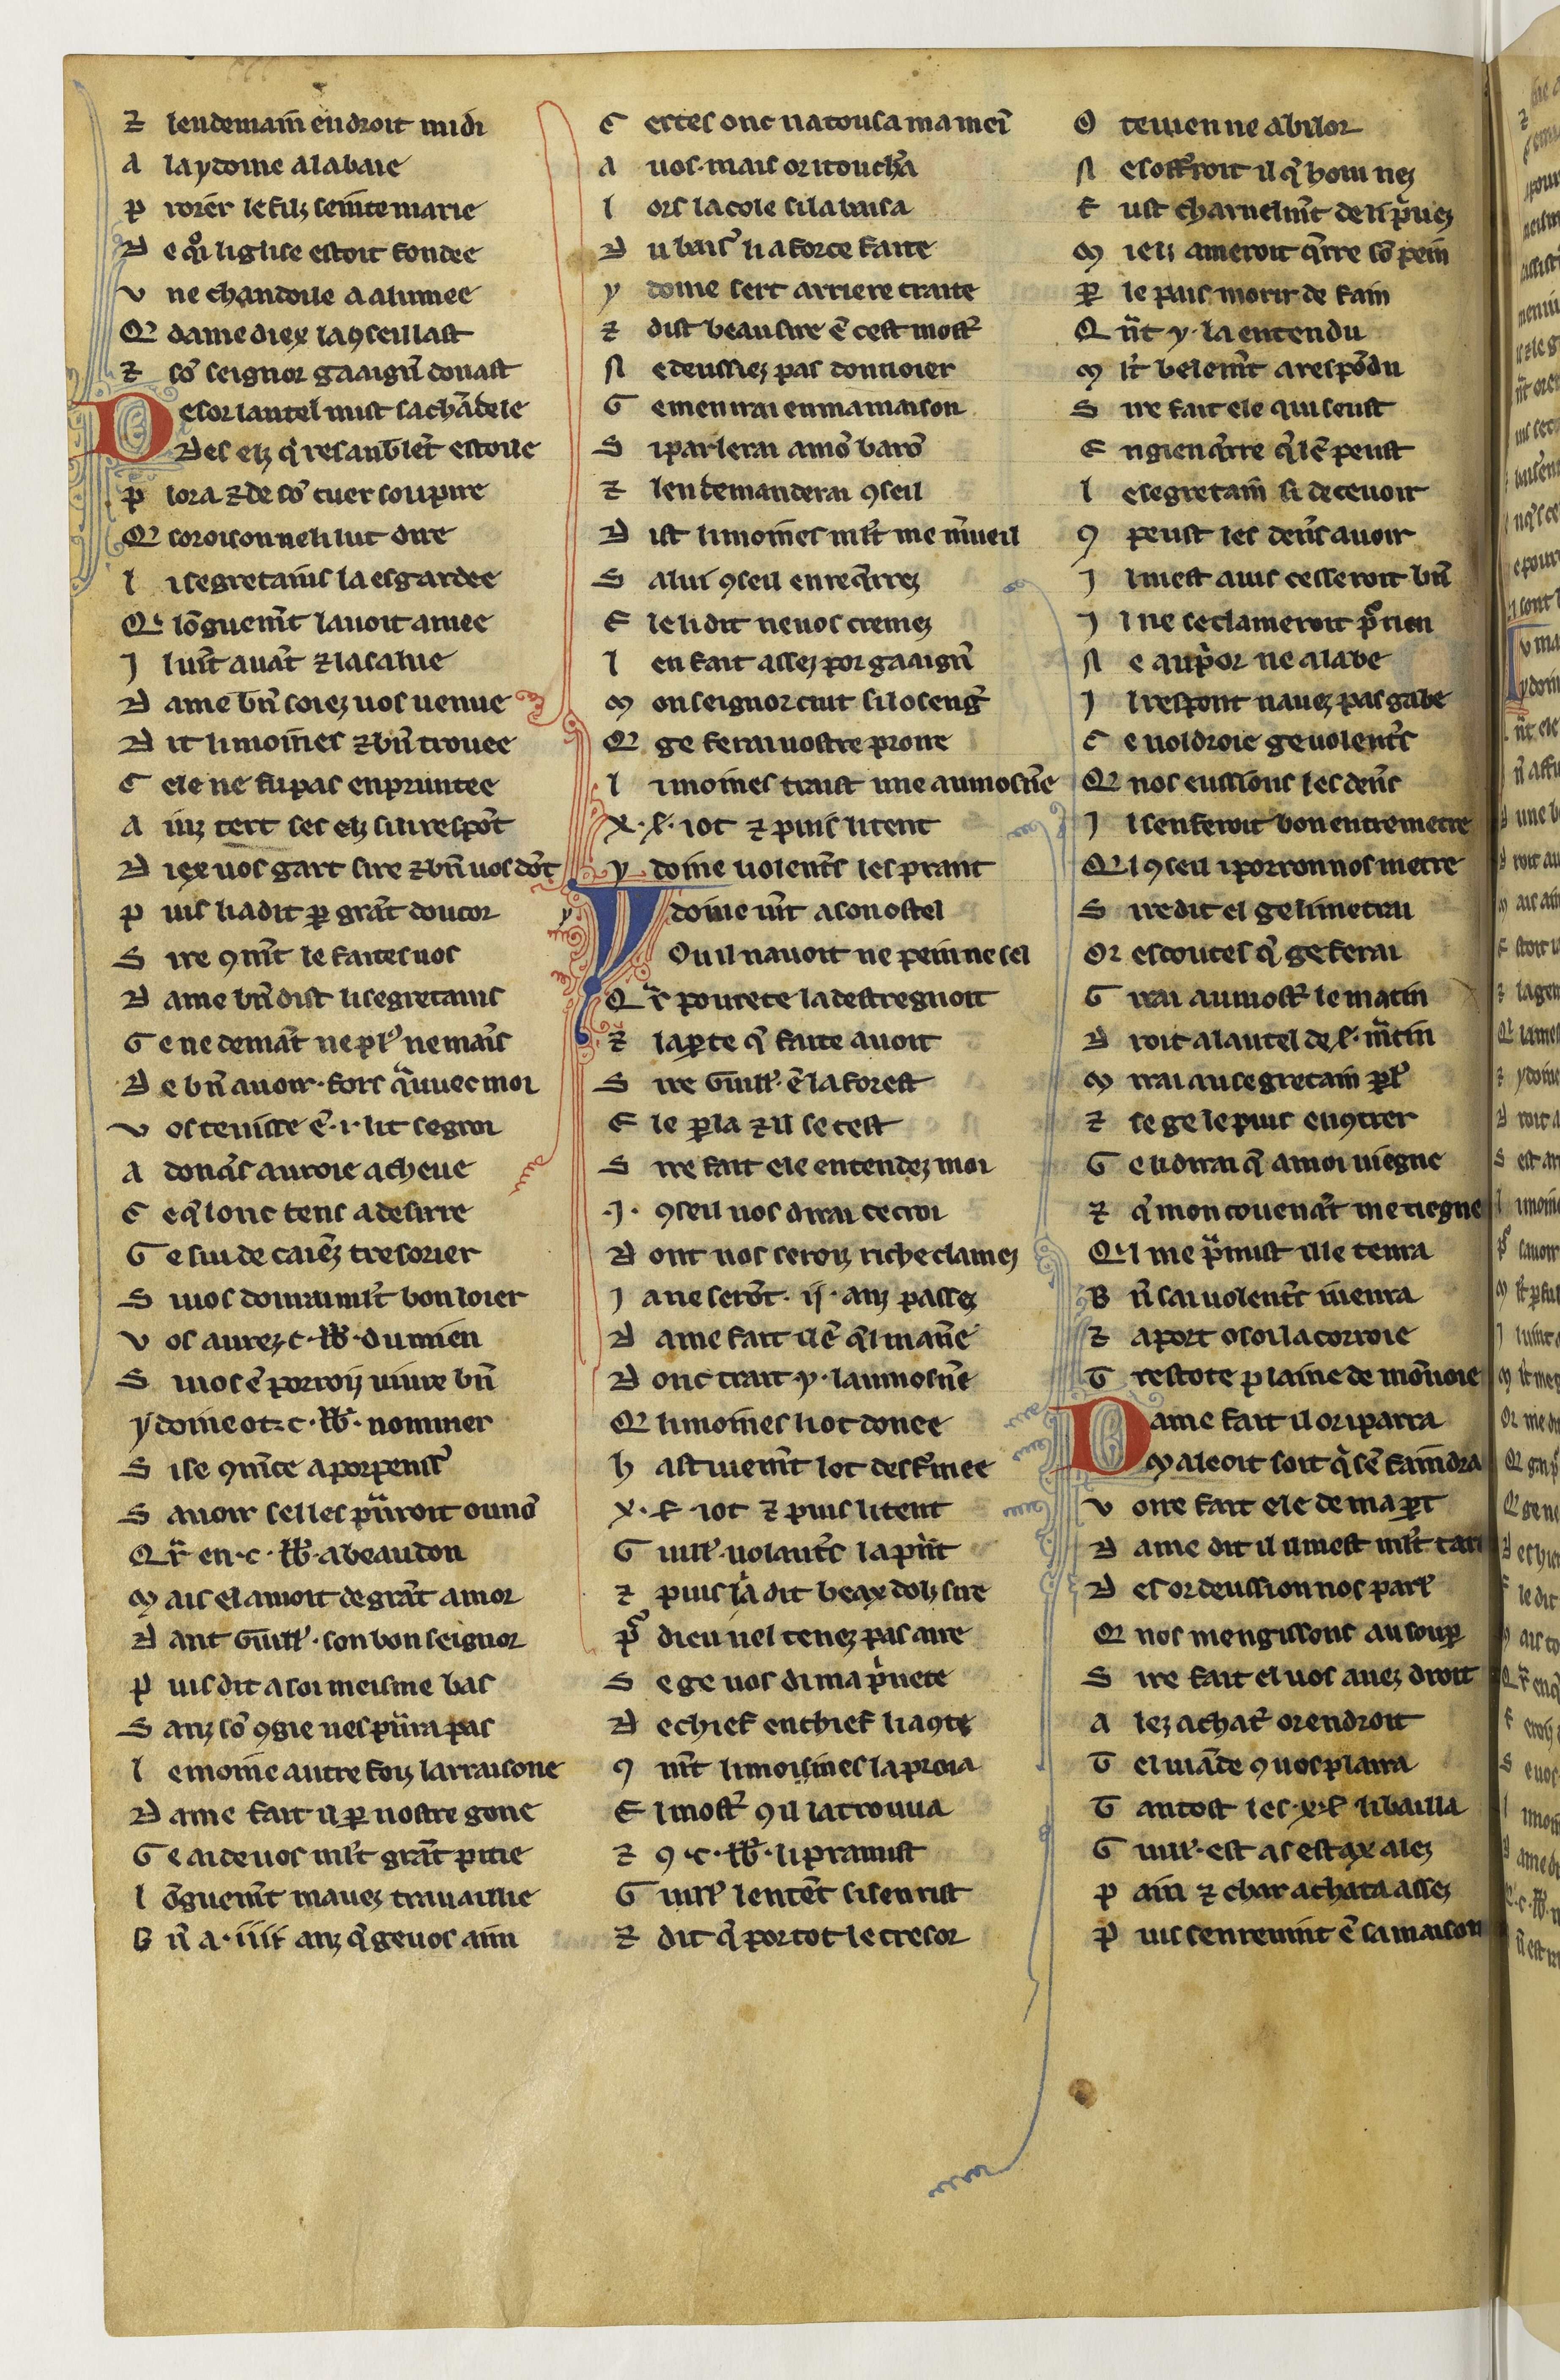 ⁊ lendemain endroit midi
A la ydoine a labaie
P roier le filz seinte marie
D e q̇ liglise estoit fondee
V ne chandoile a alumee
Q̃ damediex la ꝯseillast
⁊ sõ seignor gaaigñ donast
D esor lautel mist sa chãdele
Des elz q̇ resanbleẽt estoile
P lora ⁊ de sõ cuer soupire
Q̃ soroison ne li lut dire
L i segretains la esgardee
Q̇ lõguem̃t lauoit amee
I l uiñt auãt ⁊ la salue
D ame bñ soiez uos uenue
D it li moines ⁊ bñ trouee
C ele ne fu pas enpruntee
A inz tert ses elz si li respõt
D iex uos gart sire ⁊ bñ uos dõt
P uis li a dit ꝑ grãt doucor
S ire ꝯm̃t le faites uos
D ame bñ dist li segretains
G e ne demãt ne plꝰ ne mains
D e bñ auoir · fors q̃ auec moi
V os tenisse ẽ · i · lit segroi
A donc̃s auroie acheue
C e q̃ lonc tens a desirre
G e sui de caienz tresorier
S i uos donrai ml̃t bon loier
V os aurez · c · lib̃ · du mien
S i uos ẽ porroiz uiure bñ
Y doine ot · c · lb̃ · nonmer
S i se ꝯm̃ce a porpenser̃
S auoir selles p̃nroit ou nõ
Q̃r en · c · lb̃ · a beau don
M ais el amoit de grãt amor
D ant Guill̃ · son bon seignor
P uis dit a soi meisme bas
S anz sõ ꝯgie nes p̃nra pas
L e moine autre foiz larraisone
D ame fait il ꝑ uostre gone
G e ai de uos ml̃t grãt pitie
L õguem̃t mauez trauaillie
B ñ a · iiii anz q̃ ge uos aim
C ertes onc na tousa ma mein̄
A uos · mais or i touch̃a
L ors lacole si la baisa
D u baisꝰ li a force faite
Y doine sert arriere traite
⁊ dist beau sire ẽ cest mostꝰ
N e deussiez pas donnoier
G e men irai en ma maison
S i parlerai a mõ barõ
⁊ len demanderai ꝯseil
D ist li moines ml̃t me m̃ueil
S a lui ꝯseil en req̃rrez
E le li dit ne uos cremez
L en fait assez por gaaigñ
M on seignor cuit si losengꝰ
Q̃ ge ferai uostre proiere
L i moines traist une aumosñe
X · s̃ · i ot ⁊ puis li tent
Y doine uolent̃s les prant
Y doine uiñt a son ostel
Ou il nauoit ne pein ne sel
Q̃r pourete la destregnoit
⁊ la ꝑte q̃ faite auoit
S ire Guill̃ · ẽ la forest
E le ꝑla ⁊ il se test
S ire fait ele entendez moi
· I · ꝯseil uos dirai ce croi
D ont uos seroiz riche clamez
I a ne serõt · ii · anz passez
D ame fait il ẽ q̃l mañe
D onc trait · y · laumosñe
Q̃ li moines li ot donee
H astiuem̃t lot desf̃mee
X · s̃ · i ot ⁊ puis li tent
G uill̃ · uolant̃s la prĩt
⁊ puis la dit beax dolz sire
P̱ dieu nel tenez pas a ire
S e ge uos di ma p̃uete
D e chief en chief li a ꝯte
ꝯ m̃t li moisnes la proia
E l mostꝰ ꝯ il la trouua
⁊ ꝯ · c · lb̃ · li pramist
G uill̃ lentẽt si sen rist
⁊ dit q̃ por tot le tresor
O teuien ne abilor
N e sofferroit il q̃ hom nez
F ust charnelm̃t de li p̃uez
M ielz ameroit q̃rre sõ pein
P̱ le pais morir de fain
Q ñt · y · la entendu
M lt̃ belem̃t a respõdu
S ire fait ele qui seust
E ngien q̃rre q̃ lẽ peust
L e segretain si deceuoir
ꝯ peust les deniẽs auoir
I l mest auis ce seroit bñ
I l ne se clameroit p̱ rien
N e au p̃or ne a labe
I l respont nauez pas gabe
C e uoldroie ge uolent̃s
Q̃ nos eussions les deñs
I l sen feroit bon entremetre
Q̃l ꝯseil i porron nos metre
S ire dit el ge li metrai
Or escoutes q̃ ge ferai
G irai au mostꝰ le matin
D roit a lautel de s̃ · m̃tin
M irai au segretain ꝑlꝰ
⁊ se ge le puis enꝯtrer
G e li dirai q̃ a moi uiegne
⁊ q̃ mon couenãt me tiegne
Q̇l me p̃mist ille tenra
B ñ sai uolent̃s i uenra
⁊ aport o soi la corroie
T restote plaine de moñoie
D ame fait il or i parra
Maleoit soit q̇ sẽ faindra
V oire fait ele de ma ꝑt
D ame dit il il mest ml̃t tart
D es or deussion nos parlꝰ
Q̃ nos mengissons au souꝑ
S ire fait el uos auez droit
A lez achatꝰ orendroit
T el uiãde ꝯ uos plaira
T antost les · x · s̃ li bailla
G uill̃ · est as estax alez
P ain ⁊ char achata assez
P uis sen reuint ẽ sa maison